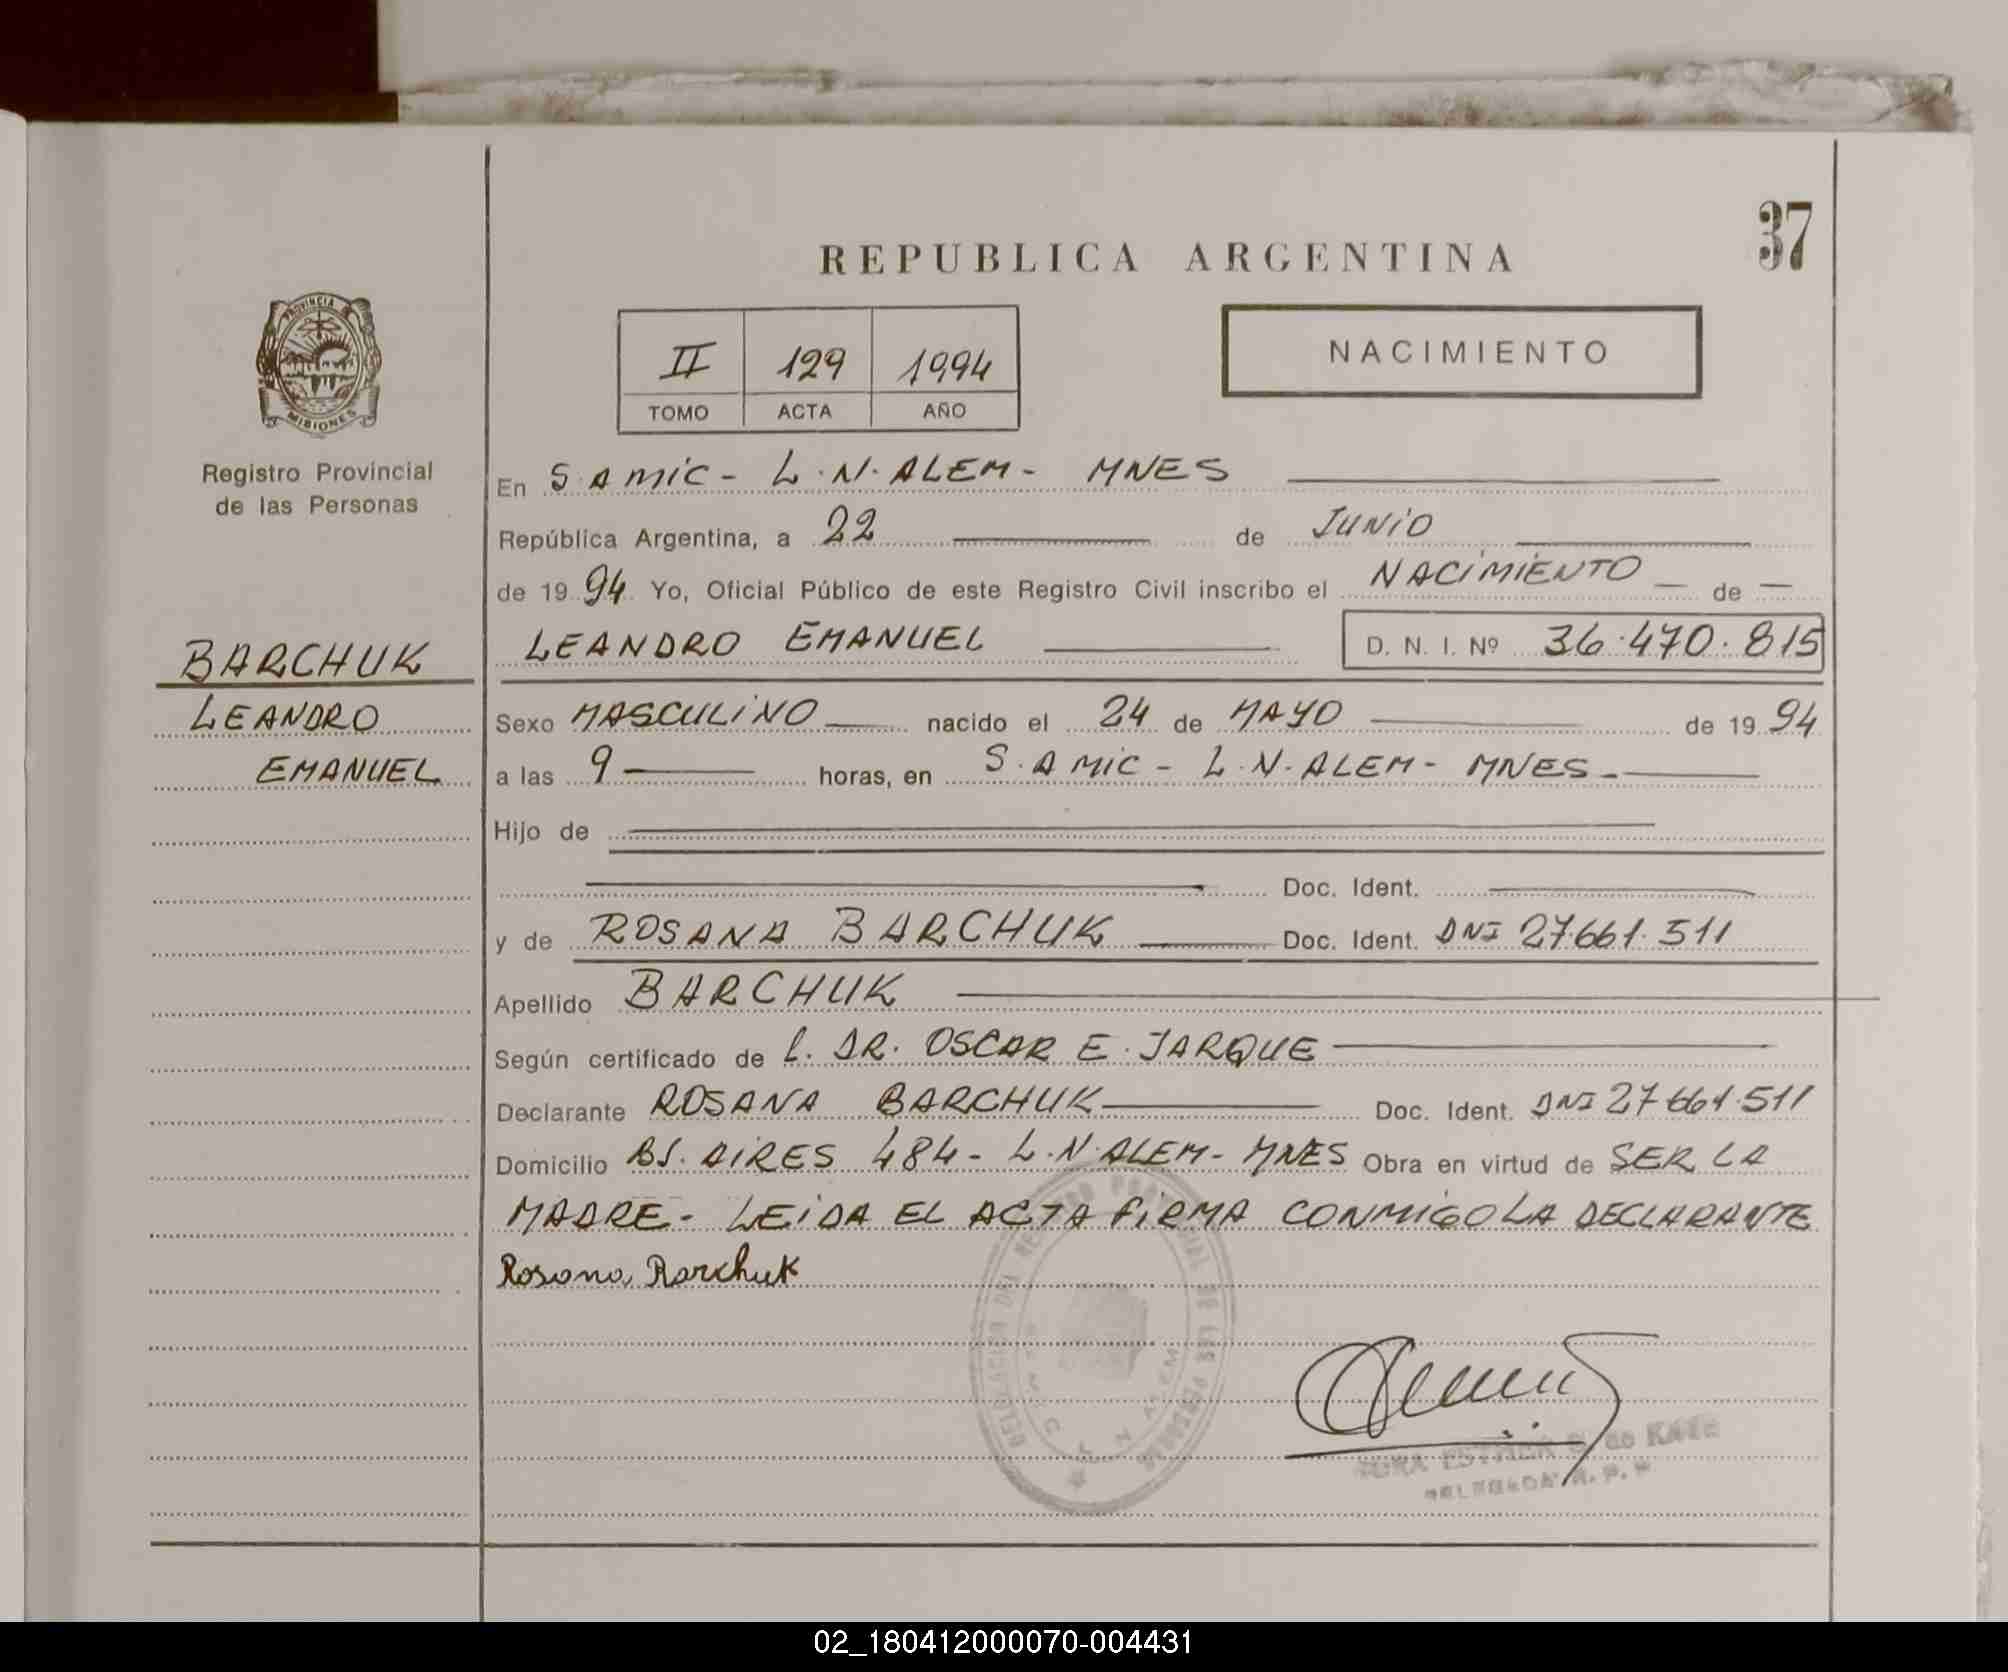 37
REPUBLICA ARGENTINA
PROVINCIA
MISIONES
II 129 1994
TOMO ACTA AÑO
NACIMIENTO
Registro Provincial
de las Personas
BARCHUK
LEANDRO
EMANUEL
En S.AMIC- L.N.ALEM- MNES
República Argentina, a 22 de JUNIO
de 1994 Yo, Oficial Público de este Registro Civil inscribo el NACIMIENTO de
LEANDRO EMANUEL D. N. I. Nº 36.470.815
Sexo MASCULINO nacido el 24 de MAYO de 1994
a las 9 horas, en S.AMIC- L.N.ALEM- MNES-
Hijo de
Doc. Ident.
y de ROSANA BARCHUK Doc. Ident. DNI 27.661.511
Apellido BARCHUK
Según certificado de L. DR. OSCAR E. JARQUE
Declarante ROSANA BARCHUK Doc. Ident. DNI 27.661.511
Domicilio BS. AIRES 484- L.N.ALEM- MNES Obra en virtud de SER LA
MADRE- LEIDA EL ACTA FIRMA CONMIGO LA DECLARANTE
Rosana Barchuk
DELEGACION DEL REGISTRO PROVINCIAL DE LAS PERSONAS
ESTHER
DELEGADA R. P. P.
02_180412000070-004431